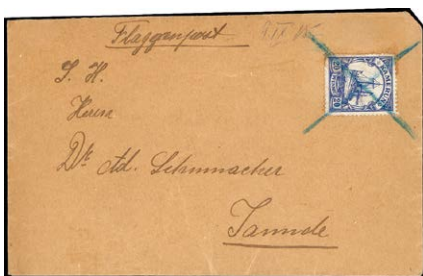 Flaggenpost
S. H.
Herrn
Dr. Ad. Schumacher
Jaunde
KAMERUN